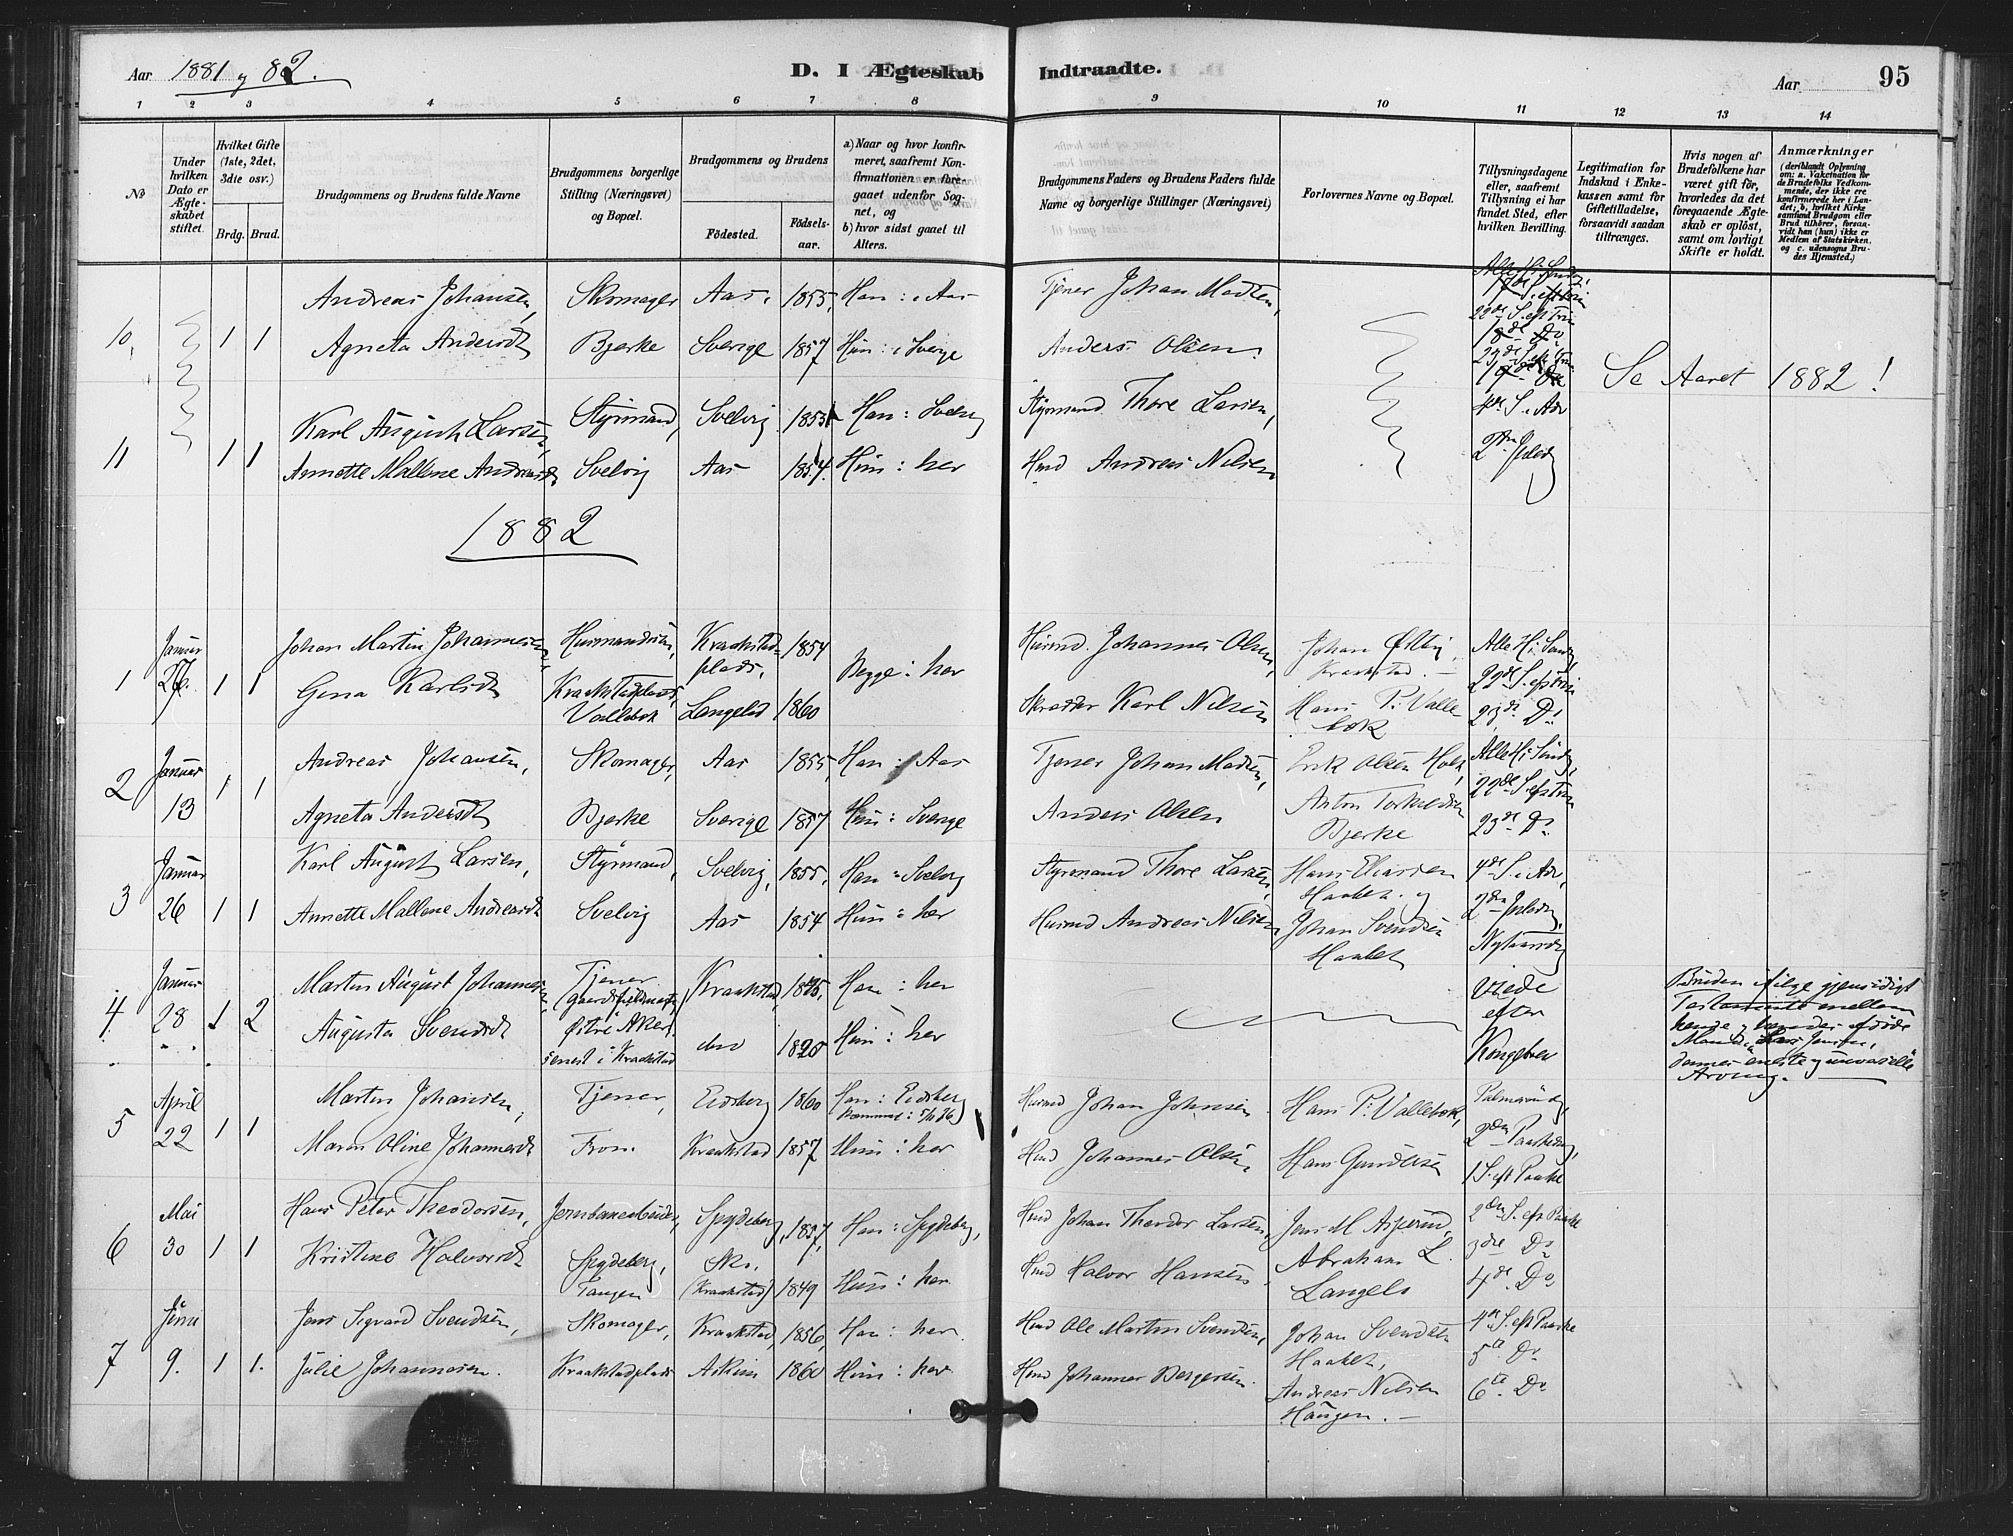 Aar 1881 og 82.
D. I Ægteskab Indtraadte.
Aar 95
1 2 3 4 5 6 7 8 9 10 11 12 13 14
№
Under hvilken Dato er Ægteskabet stiftet.
Hvilket Gifte (1ste, 2det, 3die osv.)
Brdg. Brud.
Brudgommens og Brudens fulde Navne
Brudgommens borgerlige Stilling (Næringsvei) og Bopæl.
Brudgommens og Brudens
Fødested. Fødselsaar.
a) Naar og hvor konfirmeret, saafremt Konfirmationen er foregaaet udenfor Sognet, og
b) hvor sidst gaaet til Alters.
Brudgommens Faders og Brudens Faders fulde Navne og borgerlige Stillinger (Næringsvei)
Forlovernes Navne og Bopæl.
Tillysningsdagene eller, saafremt Tillysning ei har fundet Sted, efter hvilken Bevilling.
Legitimation for Indskud i Enkekassen samt for Giftetilladelse, forsaavidt saadan tiltrænges.
Hvis nogen af Brudefolkene har været gift før, hvorledes da det foregaaende Ægteskab er opløst, samt om lovligt Skifte er holdt.
Anmærkninger (deriblandt Oplysning om: a. Vakcination for de Brudefolks Vedkommende, der ikke ere konfirmerede her i Landet; b. hvilket Kirkesamfund Brudgom eller Brud tilhører, forsaavidt han (hun) ikke er Medlem af Statskirken, og c. udensogns Brudes Hjemsted.)
Andreas Johansen, Skomager Aas. 1855, Han: i Aas Tjener Johan Madsen,
10, 1 1 Agneta Andersdt Bjerke Sverige 1857 Hun: i Sverige Anders Olsen.
Se Aaret 1882!
Karl August Larsen, Styrmand, Svelvig 1855 Han: Svelvig Styrmand Thore Larsen, 4de S. i Adv
11 1 1 Annette Mallene Andreasdt Svelvig Aas 1854. Hun: her Hmd Andreas Nilsen 2den Juledg
1882
Januar Johan Martin Johannesen, Husmandssøn, Kraakstadplads, 1854 Husmd. Johannes Olsen, Johan Østby, Kraakstad. Alle H: Søndg,
1 27. 1 1 Gina Karlsdt Kraakstadplads, Vallebæk Langeløs 1860 Begge: her Skrædder Karl Nilsen Hans P: Vallebæk 22de S. eft Trin 23de Do
Januar Andreas Johansen, Skomager, Aas 1855, Han: Aas Tjener Johan Madsen, Erik Olsen Holt, Alle H: Søndg,
2 13 1 1 Agneta Andersdt Bjerke Sverige 1857 Hun: Sverige Anders Olsen Anton Bjerke 22de S. eft Trin 23de Do
Januar Karl August Larsen, Styrmand, Svelvig, 1855, Han: Svelvig Styrmand Thore Larsen, Hans Eliassen Haabet og 4de S. i Adv,
3 26 1 1 Annette Mallene Andreasdt Svelvig Aas 1854 Hun: her Husmd Andreas Nilsen Johan Svendsen Haabet 2den Juledg, Nytaarsdg
Januar Martin August Johannesen, Tjener Kraakstad, Han: her viede efter Kongebrev
4 28 1 2 Augusta Svendsdt Østre Aker, senest i Kraakstad do 1825 Hun: her
Bruden ifølge gjensidigt Testamente mellem hende og hendes afdøde Mand, Lars Jensen, dennes eneste universelle Arving.
April Martin Johansen, Tjener, Eidsberg 1860 Han: Eidsberg Husmd Johan Johnsen Hans P: Vallebæk, Palmesøndg,
5 22 1 1 Maren Oline Johannesdt Fron. Kraakstad 1857 Hun: her Hmd Johannes Olsen, Hans Gundersen 2den Paaskedg, 1 S. eft Paaske
Mai Hans Peter Theodorsen, Jernbanearbeider, Spydeberg, 1857, Han: Spydeberg, Hmd Johan Theodor Larsen, Jens M. Asperud, 2den S. eft Paaske
6 30 1 1 Kristine Halvorsdt Spydeberg, Tangen Ski. (Kraakstad) 1849 Hun: her Hmd Halvor Hansen Abraham L. Langeløs 3die Do 4de Do
Juni Jens Sigvard Svendsen, Skomager, Kraakstad, 1856, Han: her. Hmd Ole Martin Svendsen, Johan Svendsen Haabet, 4de S. eft Paaske
7 9. 1 1. Julie Johannesen. Kraakstadplads Askim 1860 Hun: her Hmd Johannes Børgersen. Andreas Nilsen Haugen. 5te Do 6te Do